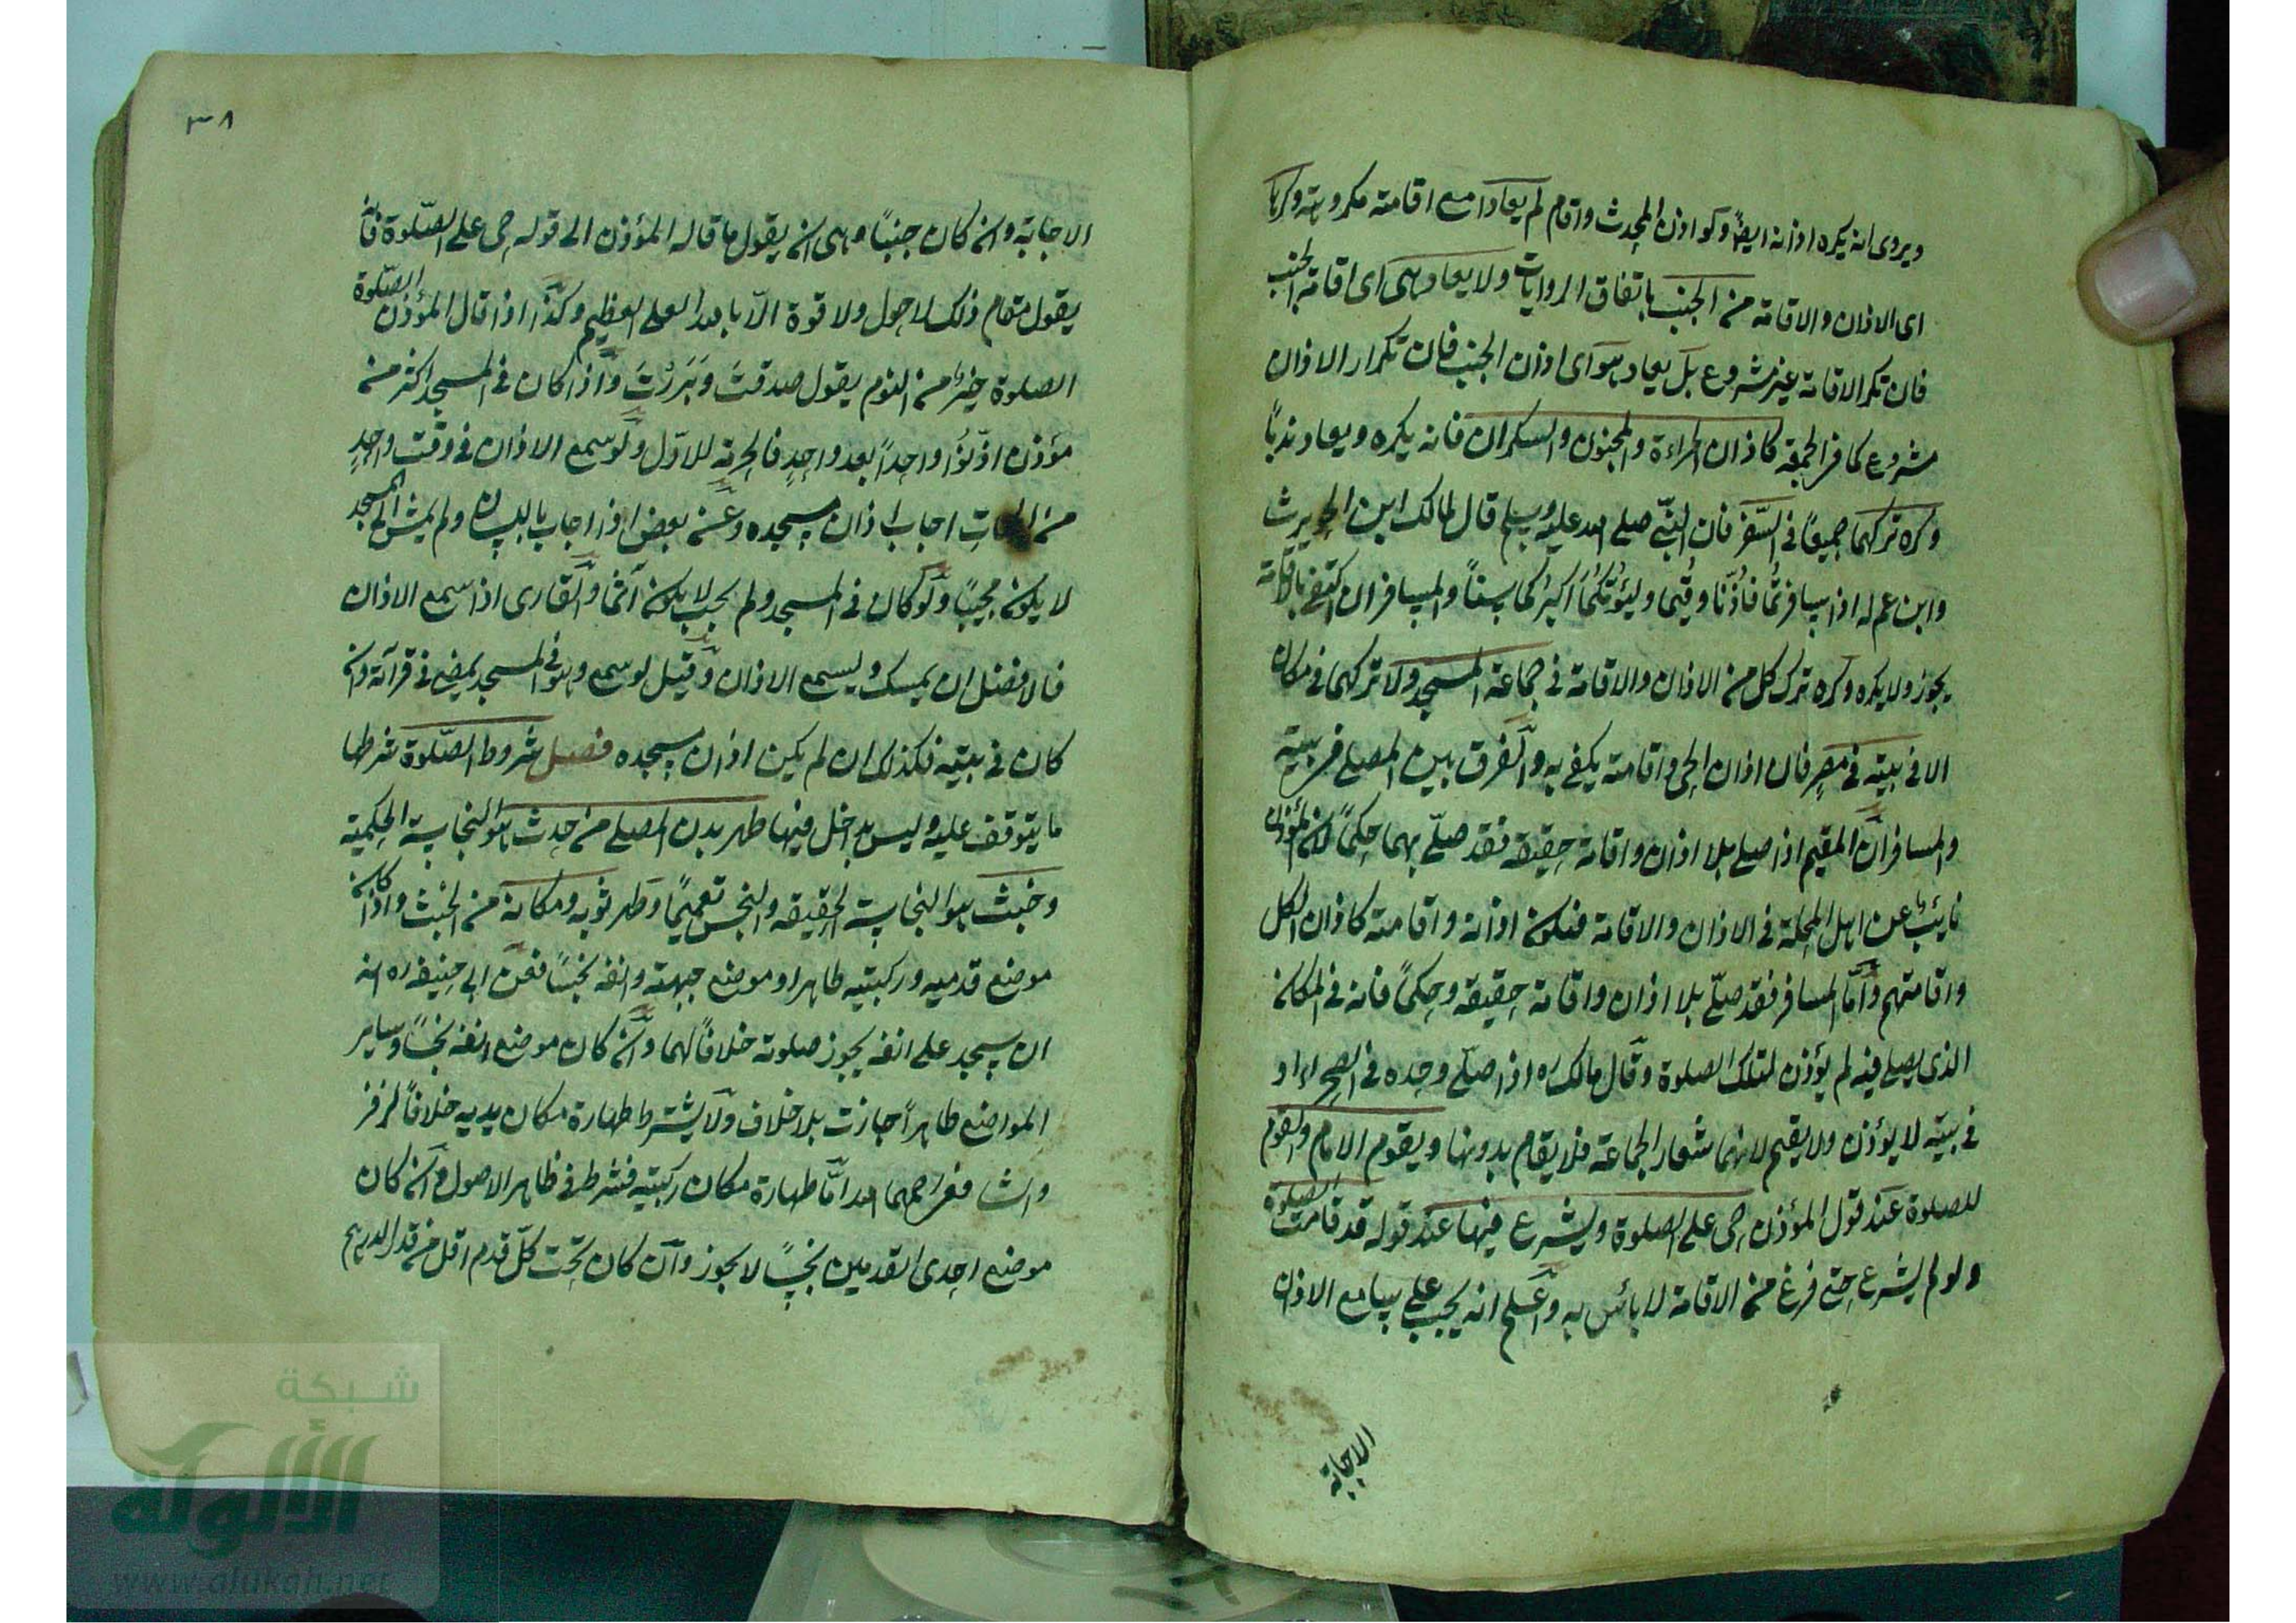 ويروى انه يكره اذانه ايضا ولو اذن المحدث واقام لم يعادا مع اقامته مكروهة وكرها
اى الاذان والاقامة من الجنب باتفاق الروايات ولا يعاد هى اى اقامة الجنب
فان تكرر الاقامة غير مشروع بل يعاد هو اى اذن الجنب فان تكرار الاذان
مشروع كما فى الجمعة كاذان المراءة والمجنون والسكران فانه يكره ويعاد ندباً
وكره تركهما جميعاً فى السّفر فان النبّى صلى الله عليه وسلم قال لمالك ابن الحويرث
وابن عم له اذا سافرتمُا فاُذّنَا وقُيما وليَؤُمّكُما اَكبرُكما سِنّاً والمسافر ان اكتفى بالاقامة
يجوز ولا يكره وكره ترك كل من الاذان والاقامة فى جماعة المسجد ولا تركهما فى مكان
الا فى بيته فى مصرٍ فان اذان الحى واقامته يكفى به والفرق بين المصلى فى بيته
والمسافر ان المقيم اذا صلى بلا اذان واقامة حقيقة فقد صلّى بهما حكماً لان المؤذن
نايبٌ عن اهل المحلة فى الاذان والاقامة فيكون اذانه واقامته كاذان الكل
واقامتهم وامّا المسافر فقد صلّى بلا اذان واقامة حقيقة وحكماً فانه فى المكان
الذى يصلى فيه لم يؤذن لتلك الصلوة وقال مالك ره اذا صلّى وحده فى الصحراء او
فى بيته لا يؤذن ولا يقيم لانهما شعار الجماعة فلا يقام بدونها ويقوم الامام والقوم
للصلوة عند قول المؤذن حى على الصلوة ويشرع فيها عند قوله قد قامت الصلوة
ولو لم يشرع حتى فرغ من الاقامة لا بأس به واعلم انه يجب على سامع الاذان
الاجابة
٣٨
الاجابة وان كان جنباً وهى ان يقول ما قاله المؤذن الى قوله حى على الصّلوة فانه
يقول مقام ذلك لا حول ولا قوة الاّ بالله العلى العظيم وكذا اذا قال المؤذن الصّلوة
الصلوة خيرٌ من النوم يقول صدقتَ وبَرَرْتَ واذا كان فى المسجد اكثر من
مؤذن اذّنوُا واحداً بعد واحدٍ فالحرمة للاوّل ولو سمع الاذان فى وقت واحدٍ
من الجهات اجاب اذان مسجده وعن بعض اذا اجاب باللسان ولم يمش الى المسجد
لا يكون مجيبًا ولو كان فى المسجد ولم يجب لا يكون آثمًا والقارى اذا سمع الاذان
فالافضل ان يمسك ويسمع الاذان وقيل لو سمع وهو فى المسجد يمضى فى قرآنه وان
كان فى بيته فكذلك ان لم يكن اذان مسجده فصل شروط الصّلوة شرطها
ما يتوقف عليه وليس بداخل فيها طهر بدن المصلى من حدث هو النجاسة الحكمية
وخبث هو النجاسة الحقيقه والنجس تعميمًا وطهر ثوبه ومكانه من الخبث واذا كان
موضع قدميه وركبتيه طاهرا وموضع جبهته وانفه نجسًا فعن ابى حنيفه ره انه
ان سجد على انفه يجوز صلوته خلافاً لهما وان كان موضع انفه نجسًا وساير
المواضع طاهراً جازت بلا خلاف ولا يشترط طهارة مكان يديه خلافاً لزفر
والشافعى رحمهما الله امّا طهارة مكان ركبتيه فشرط فى ظاهر الاصول وان كان
موضع احدى القدمين نجسًا لا يجوز وان كان تحت كلّ قدم اقل من قدر الدرهم
شبكة
الألوكة
www.alukah.net